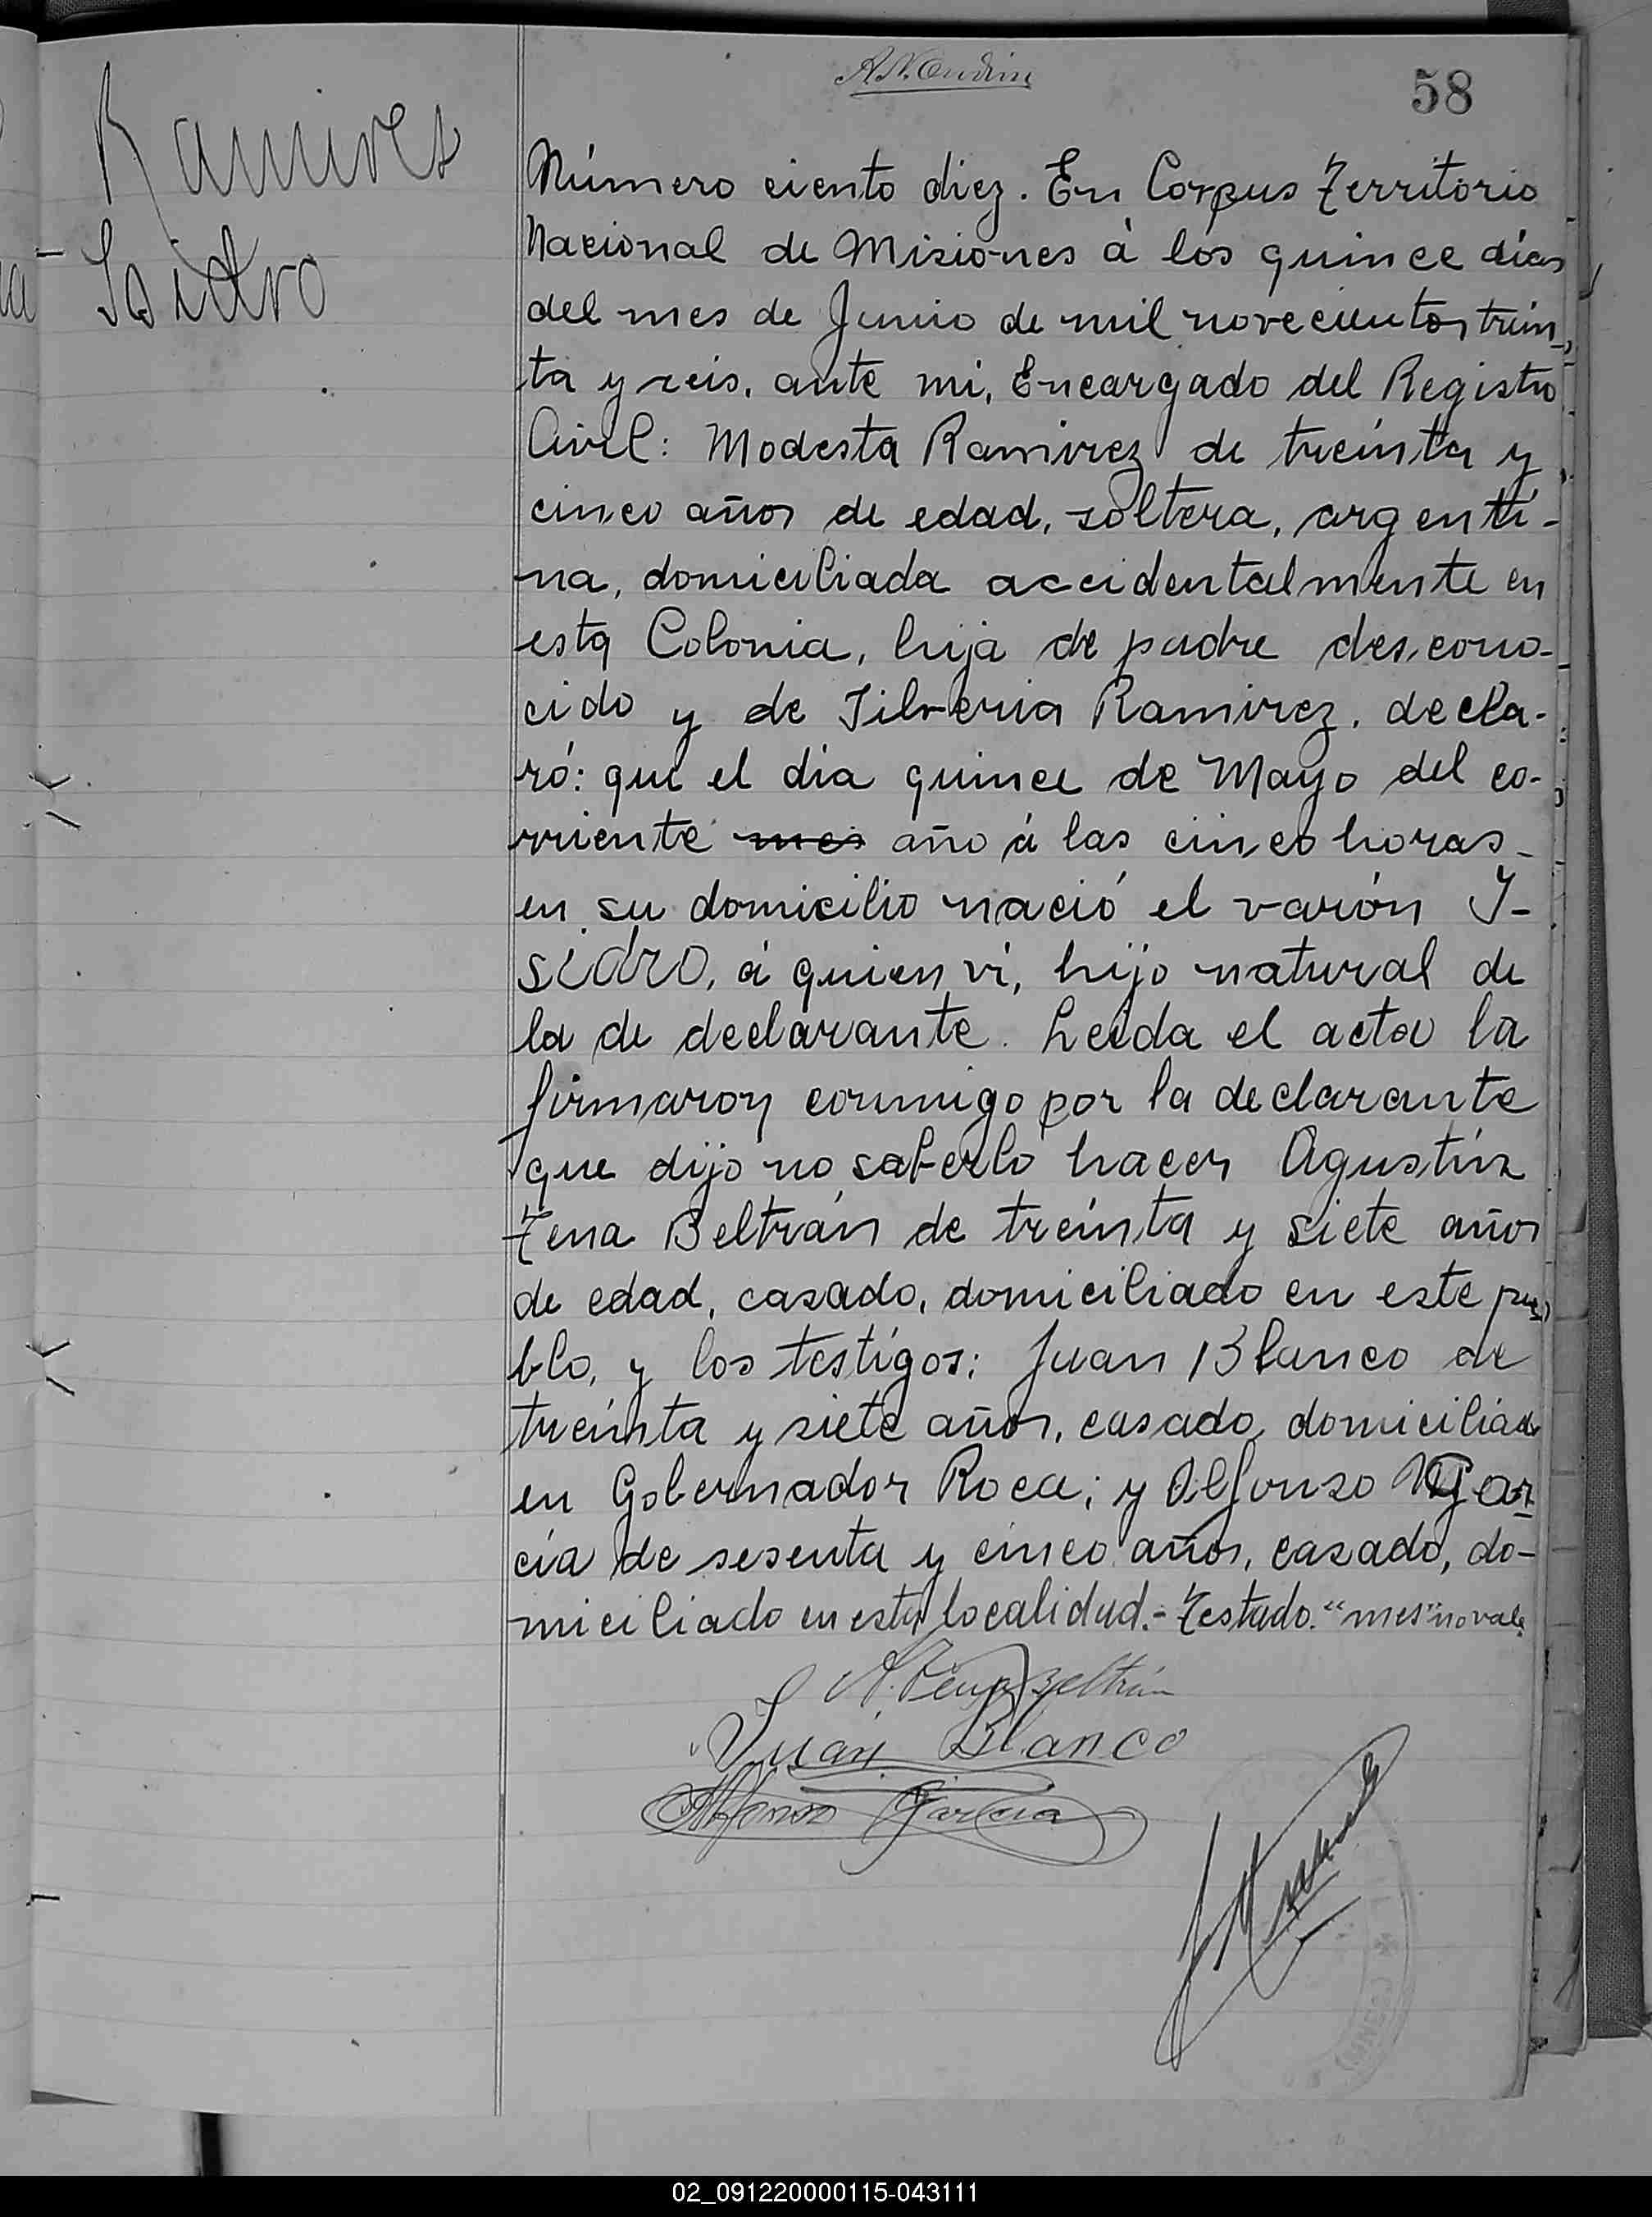 58
Ramires
Isidro
Número ciento diez. En Corpus Territorio
Nacional de Misiones á los quince días
del mes de Junio de mil novecientos trein
ta y seis, ante mi, Encargado del Registro
Civil: Modesta Ramirez de treinta y
cinco años de edad, soltera, argenti-
na, domiciliada accidentalmente en
esta Colonia, hija de padre descono-
cido y de Silveria Ramirez, decla-
ró: que el día quince de Mayo del co-
rriente mes año á las cinco horas
en su domicilio nació el varón I-
sidro, á quien ví, hijo natural de
la de declarante. Leida el acta la
firmaron conmigo por la declarante
que dijo no saberlo hacer Agustín
Tena Beltrán de treinta y siete años
de edad, casado, domiciliado en este pue
blo, y los testigos: Juan Blanco de
treinta y siete años, casado, domiciliado
en Gobernador Roca; y Alfonso Gar
cía de sesenta y cinco años, casado, do-
miciliado en esta localidad.- Testado. "mes" no vale
A. Tena Beltrán
Juan Blanco
Alfonso Garcia
02_091220000115-043111